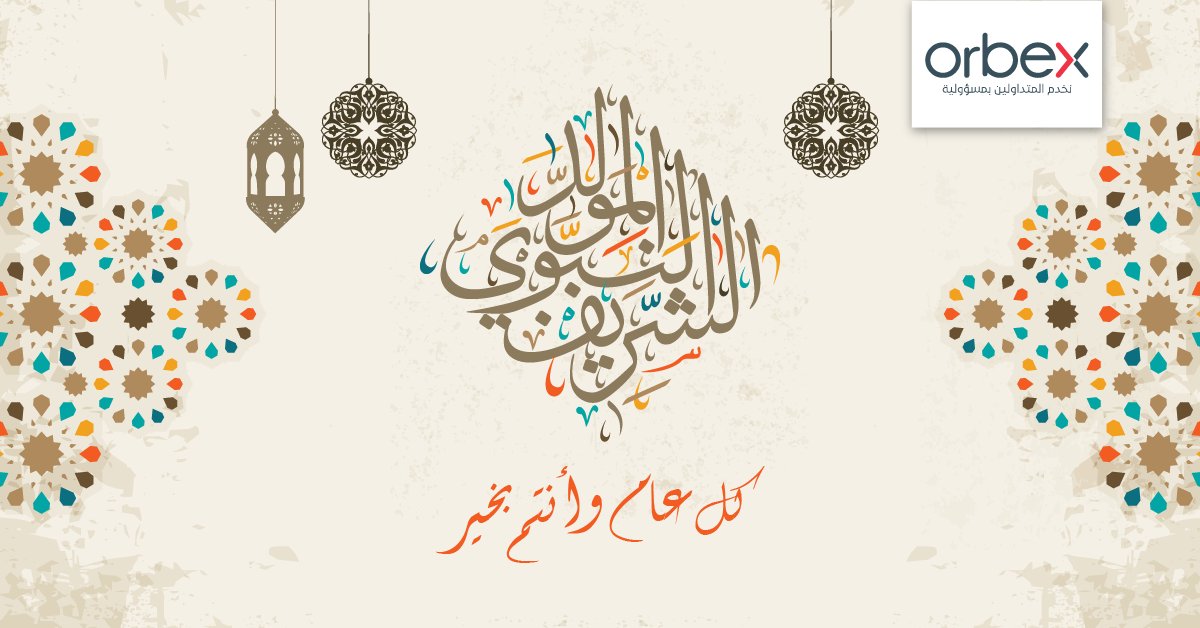 orbex
نخدم المتداولين بمسؤولية
المولد
النبوي
الشريف
كل عام وأنتم بخير